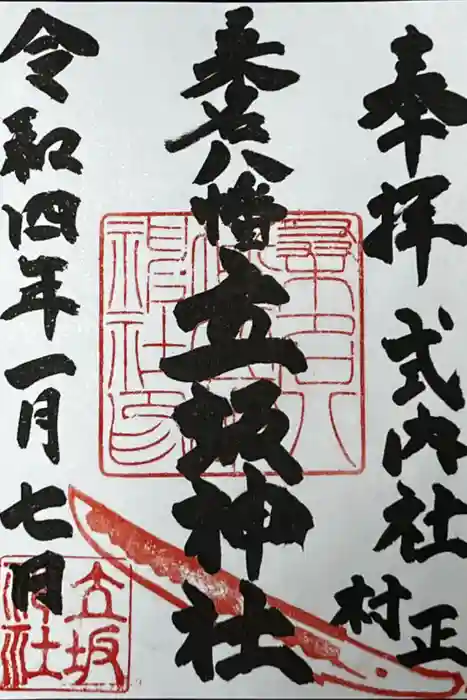 奉拝 式内社 村正
桒名八幡 立坂神社
令和四年一月七日
立坂
神社